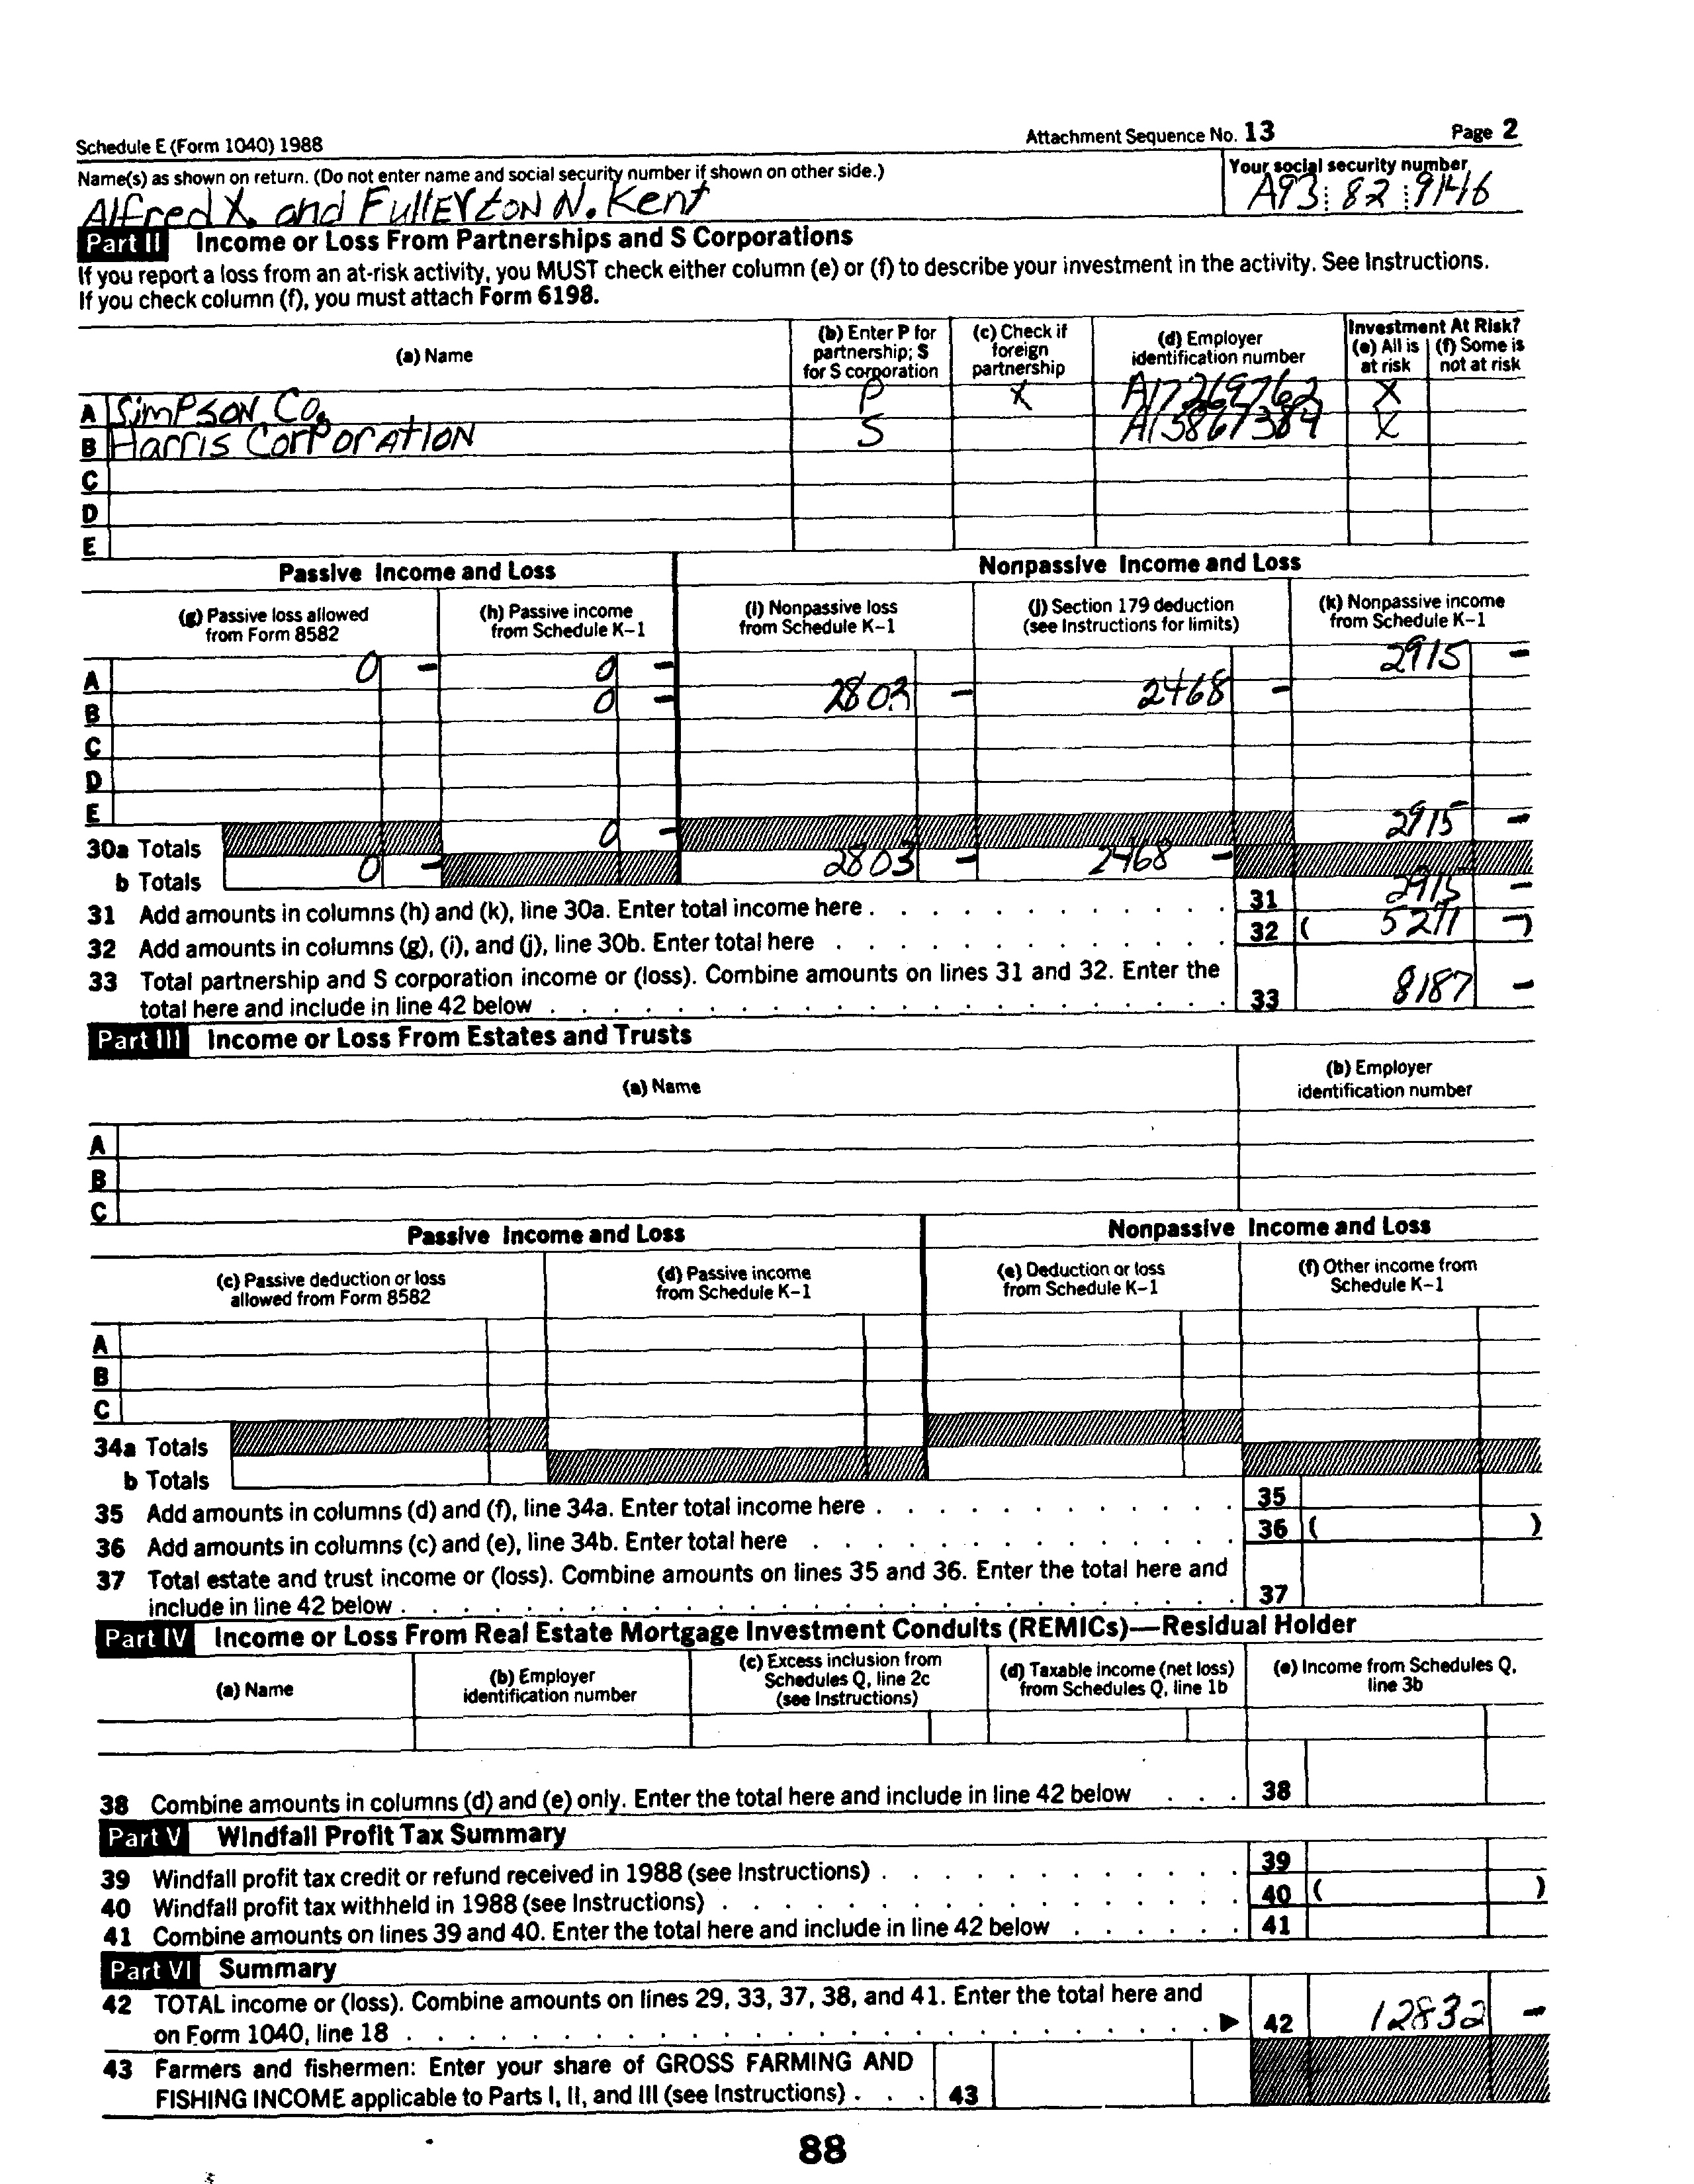 Schedule E (Form 1040) 1988 Attachment Sequence No. 13 Page 2
Name(s) as shown on return. (Do not enter name and social security number if shown on other side.) Your social security number
Alfred X. and Fullerton N. Kent A93 82 9146
Part II Income or Loss From Partnerships and S Corporations
If you report a loss from an at-risk activity, you MUST check either column (e) or (f) to describe your investment in the activity. See Instructions.
If you check column (f), you must attach Form 6198.
(a) Name (b) Enter P for partnership; S for S corporation (c) Check if foreign partnership (d) Employer identification number Investment At Risk? (e) All is at risk (f) Some is not at risk
A Simpson Co. P X A17269762 X
B Harris Corporation S A13867384 X
C
D
E
Passive Income and Loss Nonpassive Income and Loss
(g) Passive loss allowed from Form 8582 (h) Passive income from Schedule K-1 (i) Nonpassive loss from Schedule K-1 (j) Section 179 deduction (see Instructions for limits) (k) Nonpassive income from Schedule K-1
A 0 - 0 - 2915 -
B 0 - 2803 - 2468 -
C
D
E
30a Totals 0 - 2915 -
b Totals 0 - 2803 - 2468 -
31 Add amounts in columns (h) and (k), line 30a. Enter total income here . . . . . . . . . . . . 31 2915 -
32 Add amounts in columns (g), (i), and (j), line 30b. Enter total here . . . . . . . . . . . . . 32 ( 5271 - )
33 Total partnership and S corporation income or (loss). Combine amounts on lines 31 and 32. Enter the
total here and include in line 42 below . . . . . . . . . . . . . . . . . . . . . . 33 8187 -
Part III Income or Loss From Estates and Trusts
(a) Name (b) Employer identification number
A
B
C
Passive Income and Loss Nonpassive Income and Loss
(c) Passive deduction or loss allowed from Form 8582 (d) Passive income from Schedule K-1 (e) Deduction or loss from Schedule K-1 (f) Other income from Schedule K-1
A
B
C
34a Totals
b Totals
35 Add amounts in columns (d) and (f), line 34a. Enter total income here . . . . . . . . . . . . 35
36 Add amounts in columns (c) and (e), line 34b. Enter total here . . . . . . . . . . . . . . 36 ( )
37 Total estate and trust income or (loss). Combine amounts on lines 35 and 36. Enter the total here and
include in line 42 below . . . . . . . . . . . . . . . . . . . . . . . . . . . 37
Part IV Income or Loss From Real Estate Mortgage Investment Conduits (REMICs)—Residual Holder
(a) Name (b) Employer identification number (c) Excess inclusion from Schedules Q, line 2c (see Instructions) (d) Taxable income (net loss) from Schedules Q, line 1b (e) Income from Schedules Q, line 3b
38 Combine amounts in columns (d) and (e) only. Enter the total here and include in line 42 below . . . 38
Part V Windfall Profit Tax Summary
39 Windfall profit tax credit or refund received in 1988 (see Instructions) . . . . . . . . . . . . 39
40 Windfall profit tax withheld in 1988 (see Instructions) . . . . . . . . . . . . . . . . . 40 ( )
41 Combine amounts on lines 39 and 40. Enter the total here and include in line 42 below . . . . . . 41
Part VI Summary
42 TOTAL income or (loss). Combine amounts on lines 29, 33, 37, 38, and 41. Enter the total here and
on Form 1040, line 18 . . . . . . . . . . . . . . . . . . . . . . . . . . ▶ 42 12832 -
43 Farmers and fishermen: Enter your share of GROSS FARMING AND
FISHING INCOME applicable to Parts I, II, and III (see Instructions) . . . 43
88